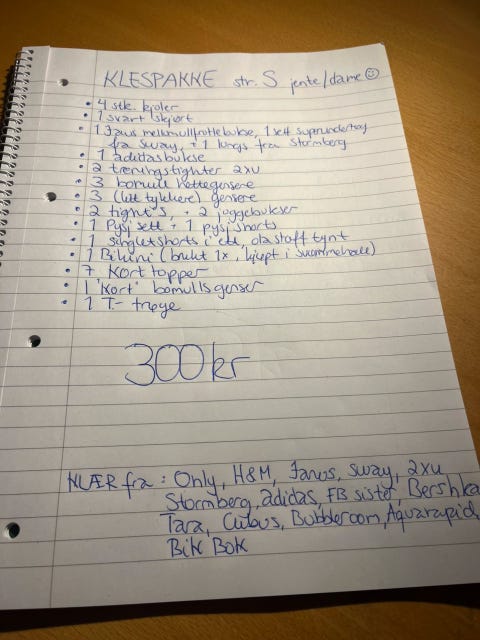 KLESPAKKE str. S jente/dame
• 4 stk. kjoler
• 1 svart skjørt
• 1 Janus mellomullfrottebukse, 1 sett superundertøy
fra Sway, + 1 longs fra Stormberg
• 1 adidasbukse
• 2 treningstighter 2XU
• 3 bomull hettegensere
• 3 (litt tykkere) gensere
• 2 tight's, + 2 joggebukser
• 1 Pysj sett + 1 pysj shorts
• 1 singletshorts i ett, ola stoff tynt
• 1 Bikini (brukt 1x, kjøpt i svømmehall)
• 7 Kort topper
• 1 "Kort" bomullsgenser
• 1 T- trøye
300 kr
KLÆR fra: Only, H&M, Janus, sway, 2xu
Stormberg, adidas, FB sister, Bershka
Zara, Cubus, Bubbleroom, Aquarapid,
Bik Bok